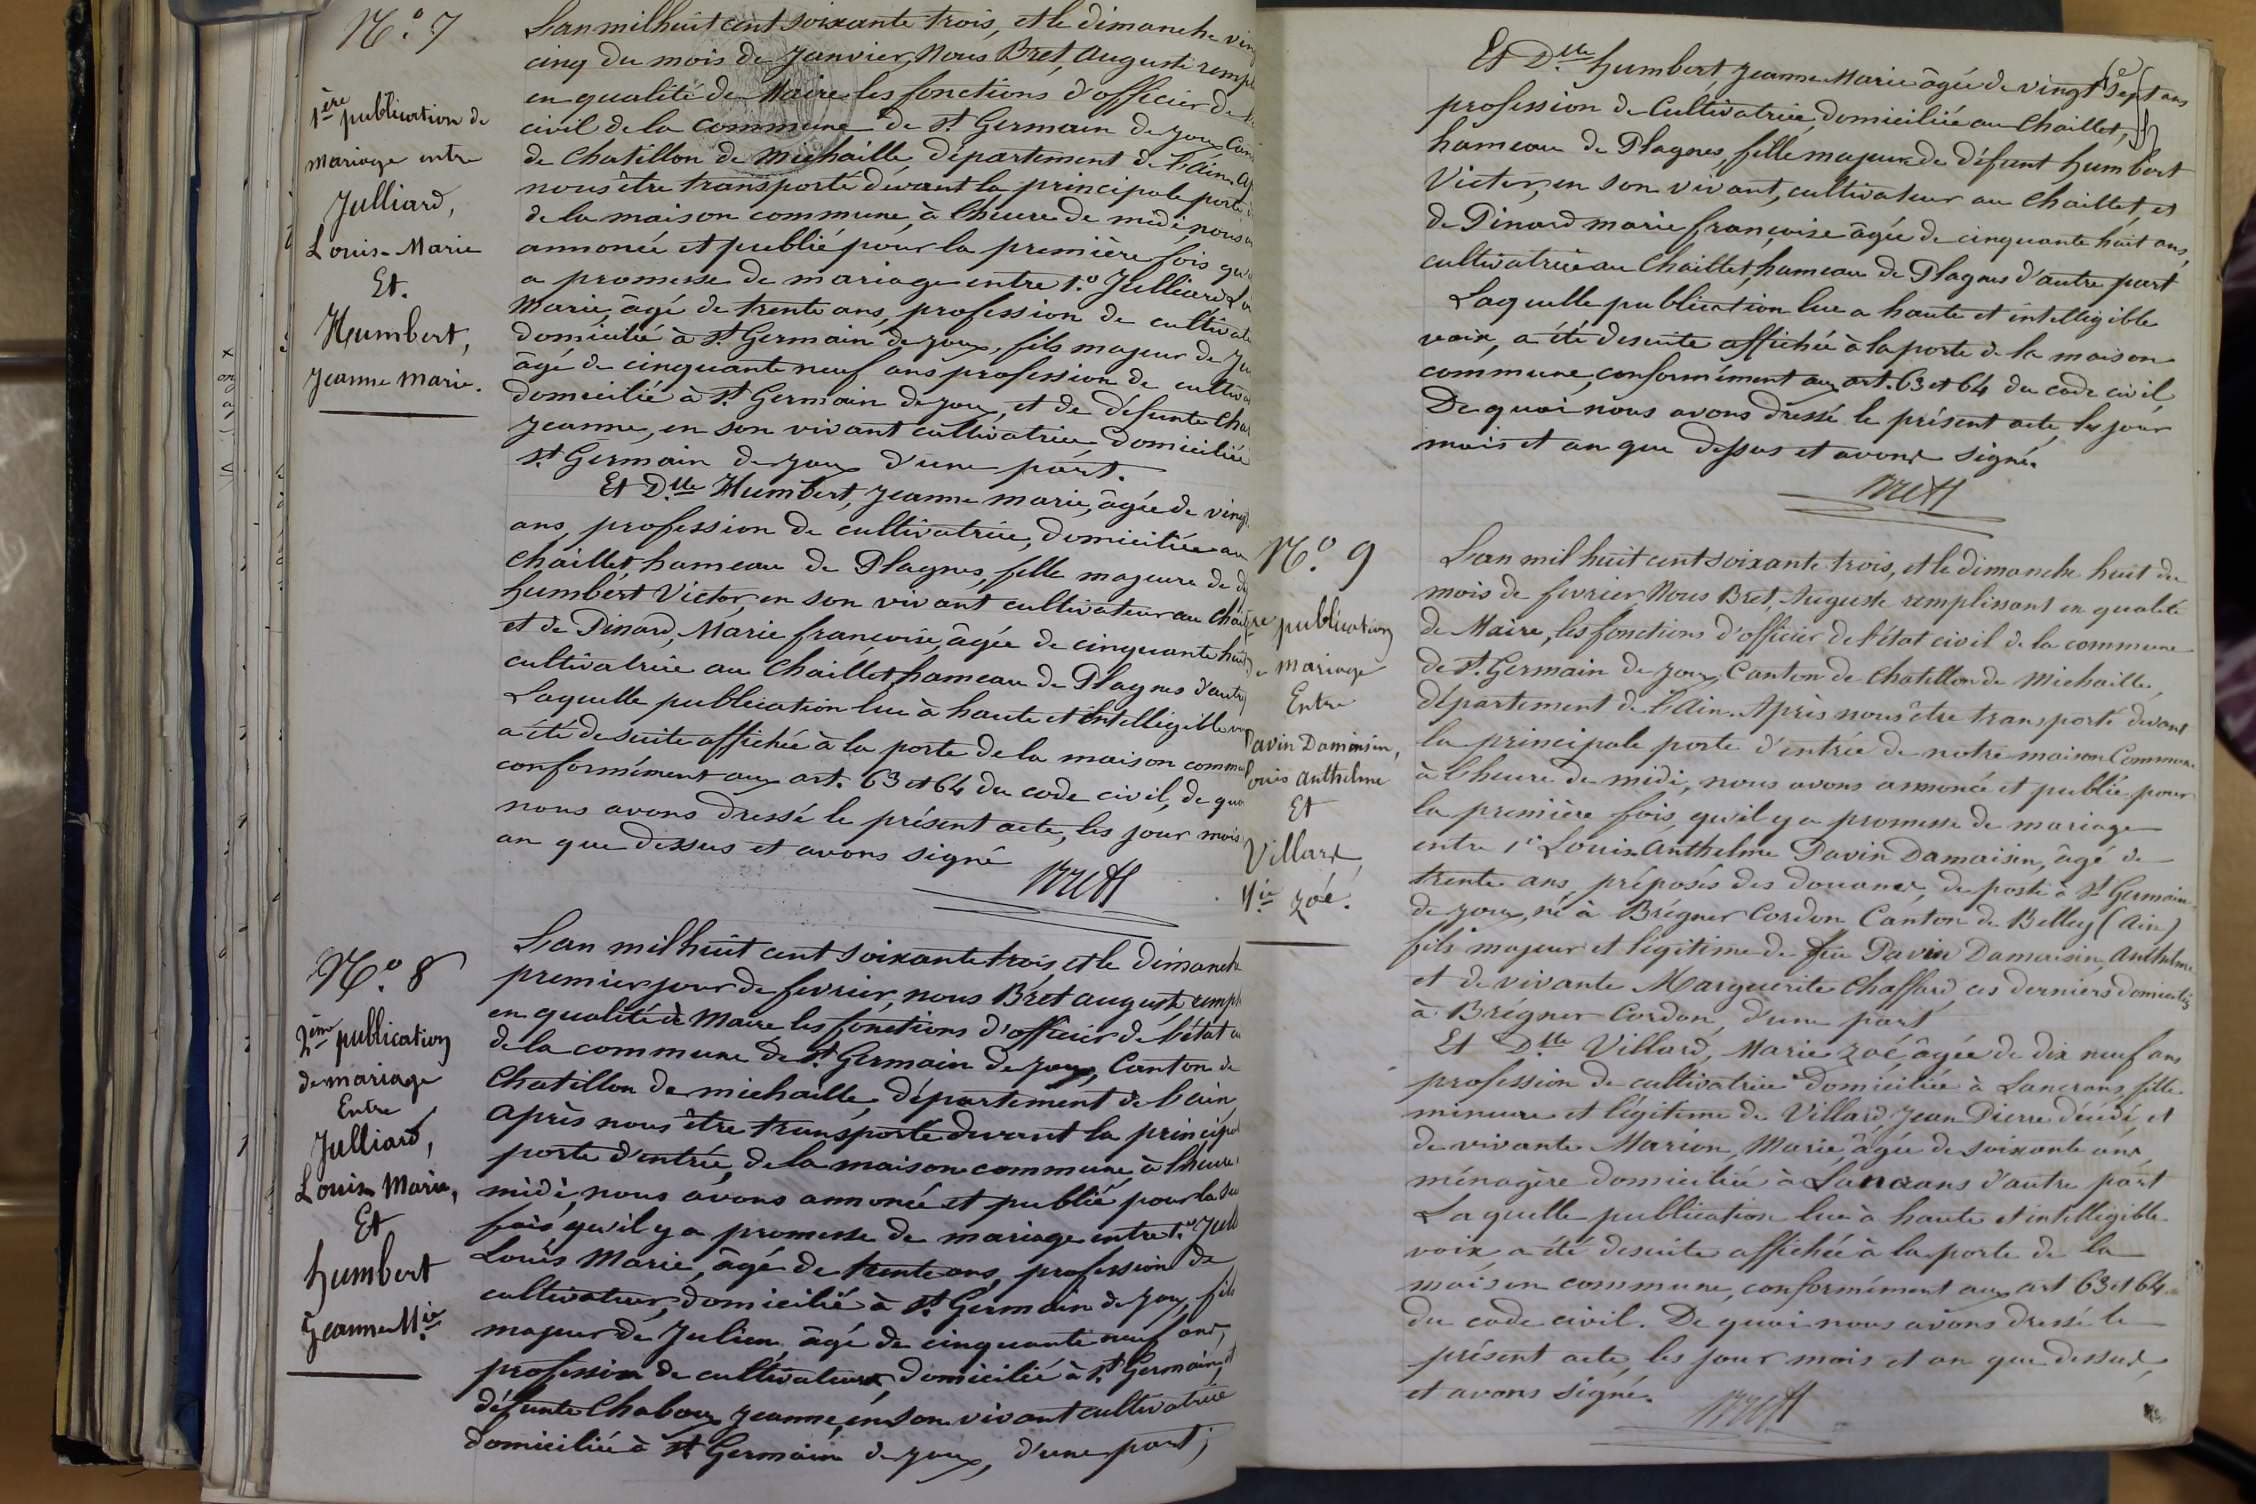 N.o 7
1ère publication de
mariage entre
Julliard,
Louis-Marie
Et.
Humbert,
Jeanne Marie.
L'an mil huit cent soixante trois, et le dimanche
cinq du mois de Janvier, Nous Bret, Auguste
en qualité de Maire les fonctions d'officier de
civil de la commune de St Germain de Joux
de Chatillon de Michaille, département de l'Ain
nous être transporté devant la principale porte
de la maison commune, à l'heure de midi, nous
annoncé et publié pour la première fois
a promesse de mariage entre 1.o Julliard
Marie, âgé de trente ans, profession de
domicilié à St Germain de Joux, fils majeur de
âgé de cinquante neuf ans profession de
domicilié à St Germain de Joux, et de défunte
Jeanne, en son vivant cultivatrice domiciliée
St Germain de Joux d'une part.
Et D.lle Humbert, Jeanne marie, âgée de
ans, profession de cultivatrice, domiciliée au
Chaillet hameau de Plagnes, fille majeure de
humbert Victor, en son vivant cultivateur au
et de Pinard, Marie françoise, âgée de cinquante
cultivatrice au Chaillet, hameau de Plagnes
Laquelle publication lue à haute et intelligible
a été de suite affichée à la porte de la maison
conformément aux art. 63 et 64 du code civil, de
nous avons dressé le présent acte, les jour mois
an que dessus et avons signé
Bret
N.o 8
2ème publication
de mariage
Entre
Julliard,
Louis Marie,
Et
humbert
Jeanne M.ie
L'an mil huit cent soixante trois, et le dimanche
premier jour de fevrier, nous Bret auguste
en qualité de Maire les fonctions d'officier de l'état
de la commune de St Germain de Joux, Canton de
Chatillon de michaille, département de l'ain,
Après nous être transporté devant la
porte d'entrée, de la maison commune, à l'heure
midi, nous avons annoncé et publié pour la
fois qu'il y a promesse de mariage entre 1.o
Louis Marie, âgé de trente ans, profession de
cultivateur, domicilié à St Germain de Joux, fils
majeur de Julien, âgé de cinquante neuf ans,
profession de cultivateur domicilié à St Germain, et
défunte Chaboux Jeanne, en son vivant cultivatrice
domiciliée à St Germain de Joux, d'une part;
Et D.lle humbert, Jeanne Marie âgée de vingt sept ans
profession de Cultivatrice, domiciliée au Chaillet,
hameau de Plagnes, fille majeure de défunt humbert
Victor, en son vivant, cultivateur au Chaillet, et
de Pinard marie françoise âgée de cinquante huit ans,
cultivatrice au Chaillet, hameau de Plagnes d'autre part
Laquelle publication lue a haute et intelligible
voix, a été desuite affichée à la porte de la maison
commune, conformément aux art. 63 et 64 du code civil,
De quoi nous avons dressé le présent acte, les jour
mois et an que dessus et avons signé.
Bret
N.o 9
publication
de mariage
Entre
Pavin Damoisin,
Louis Anthelme
Et
Villard,
M.ie Zoé.
L'an mil huit cent soixante trois, et le dimanche huit du
mois de fevrier Nous Bret, Auguste remplissant en qualité
de Maire, les fonctions d'officier de l'état civil de la commune
de St. Germain de Joux, Canton de Chatillon de Michaille,
département de l'Ain. Après nous être transporté devant
la principale porte d'entrée de notre maison Commune
à l'heure de midi, nous avons annoncé et publié pour
la première fois, qu'il y a promesse de mariage
entre 1.o Louis Anthelme Pavin Damoisin, âgé de
trente ans, préposés des douanes, de poste à St Germain
de Joux, né à Brégner Cordon Canton de Belley (Ain)
fils majeur et légitime de feu Pavin Damoisin, Anthelme
et de vivante Marguerite Chaffard, ces derniers domiciliés
à Brégner Cordon, d'une part
Et D.lle Villard, Marie Zoé, âgée de dix neuf ans
profession de cultivatrice domiciliée à Lancrans, fille
mineure et légitime de Villard, Jean Pierre décédé, et
de vivante Marion, Marie, âgée de soixante ans,
ménagère domiciliée à Lancrans d'autre part
Laquelle publication lue à haute et intelligible
voix, a été desuite affichée à la porte de la
maison commune, conformément aux art 63 et 64
du code civil. De quoi nous avons dressé le
présent acte, les jour mois et an que dessus,
et avons signé.
Bret